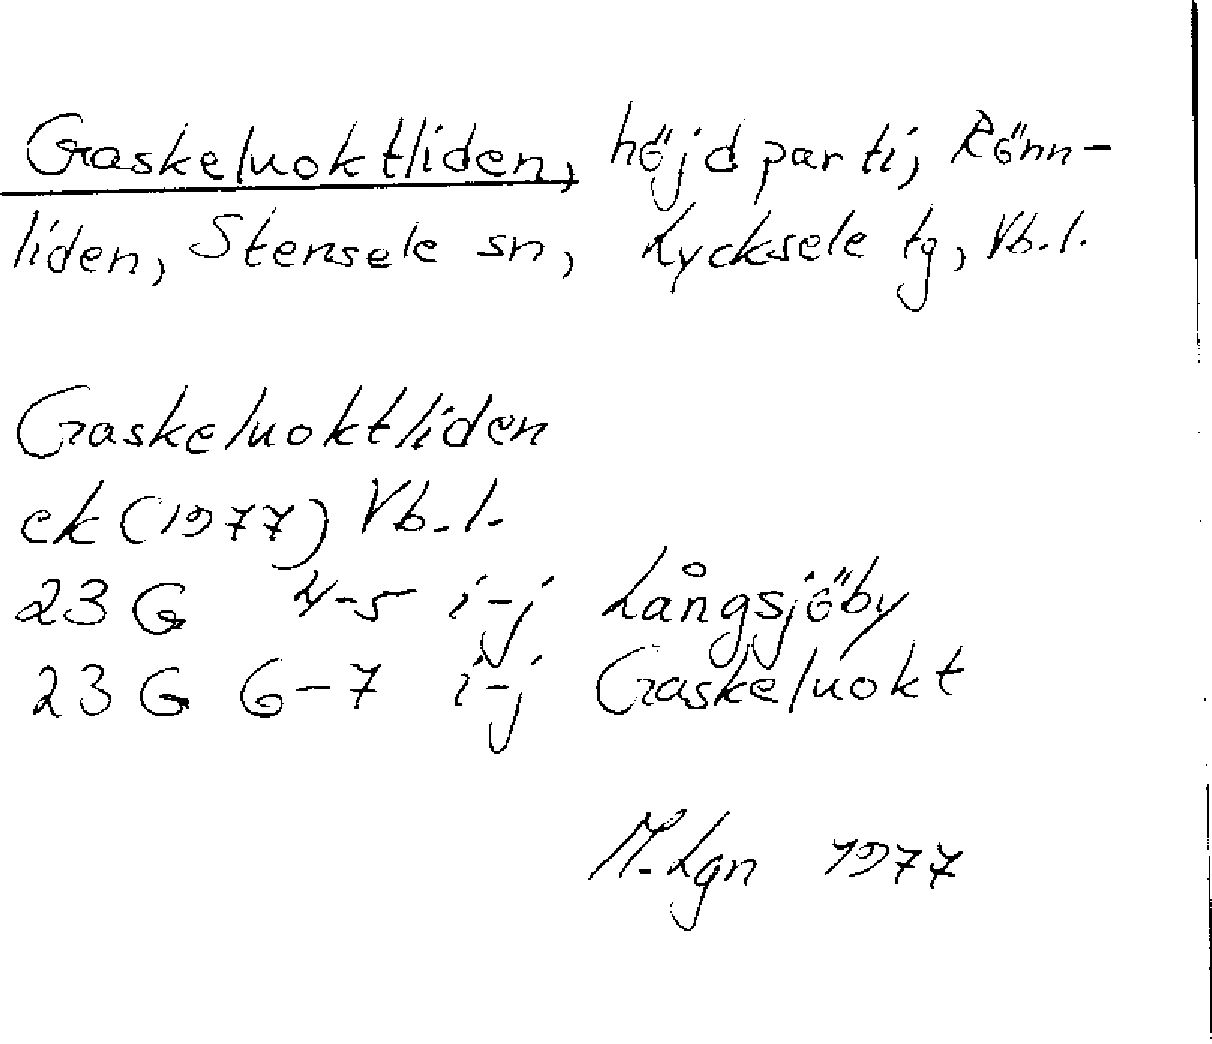 Gaskeluoktliden, höjdparti, Rönn-
liden, Stensele sn, Lycksele tg, Vb.l.
Gaskeluoktliden
ek (1977) Vb.l.
23 G 4-5 i-j Långsjöby
23 G 6-7 i-j Gaskeluokt
M.Lgn 1977